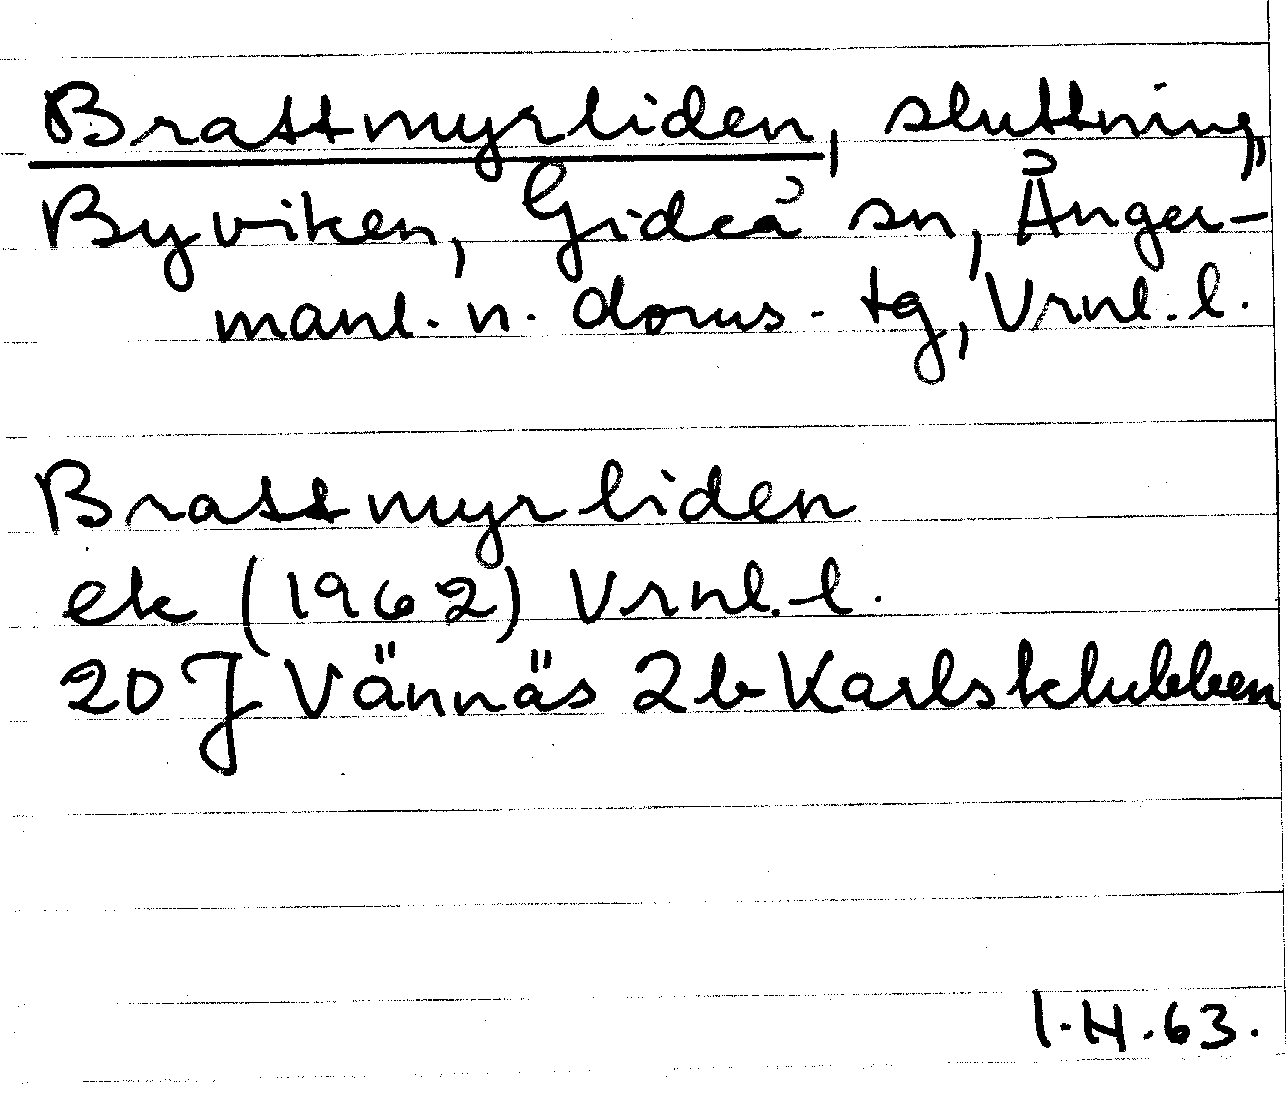 Brattmyrliden, sluttning,
Byviken, Gideå sn, Ånger-
manl. n. doms. tg, Vrnl. l.
Brattmyrliden
ek (1962) Vrnl. l.
20 J Vännäs 2b Karlsklubben
I.H.63.